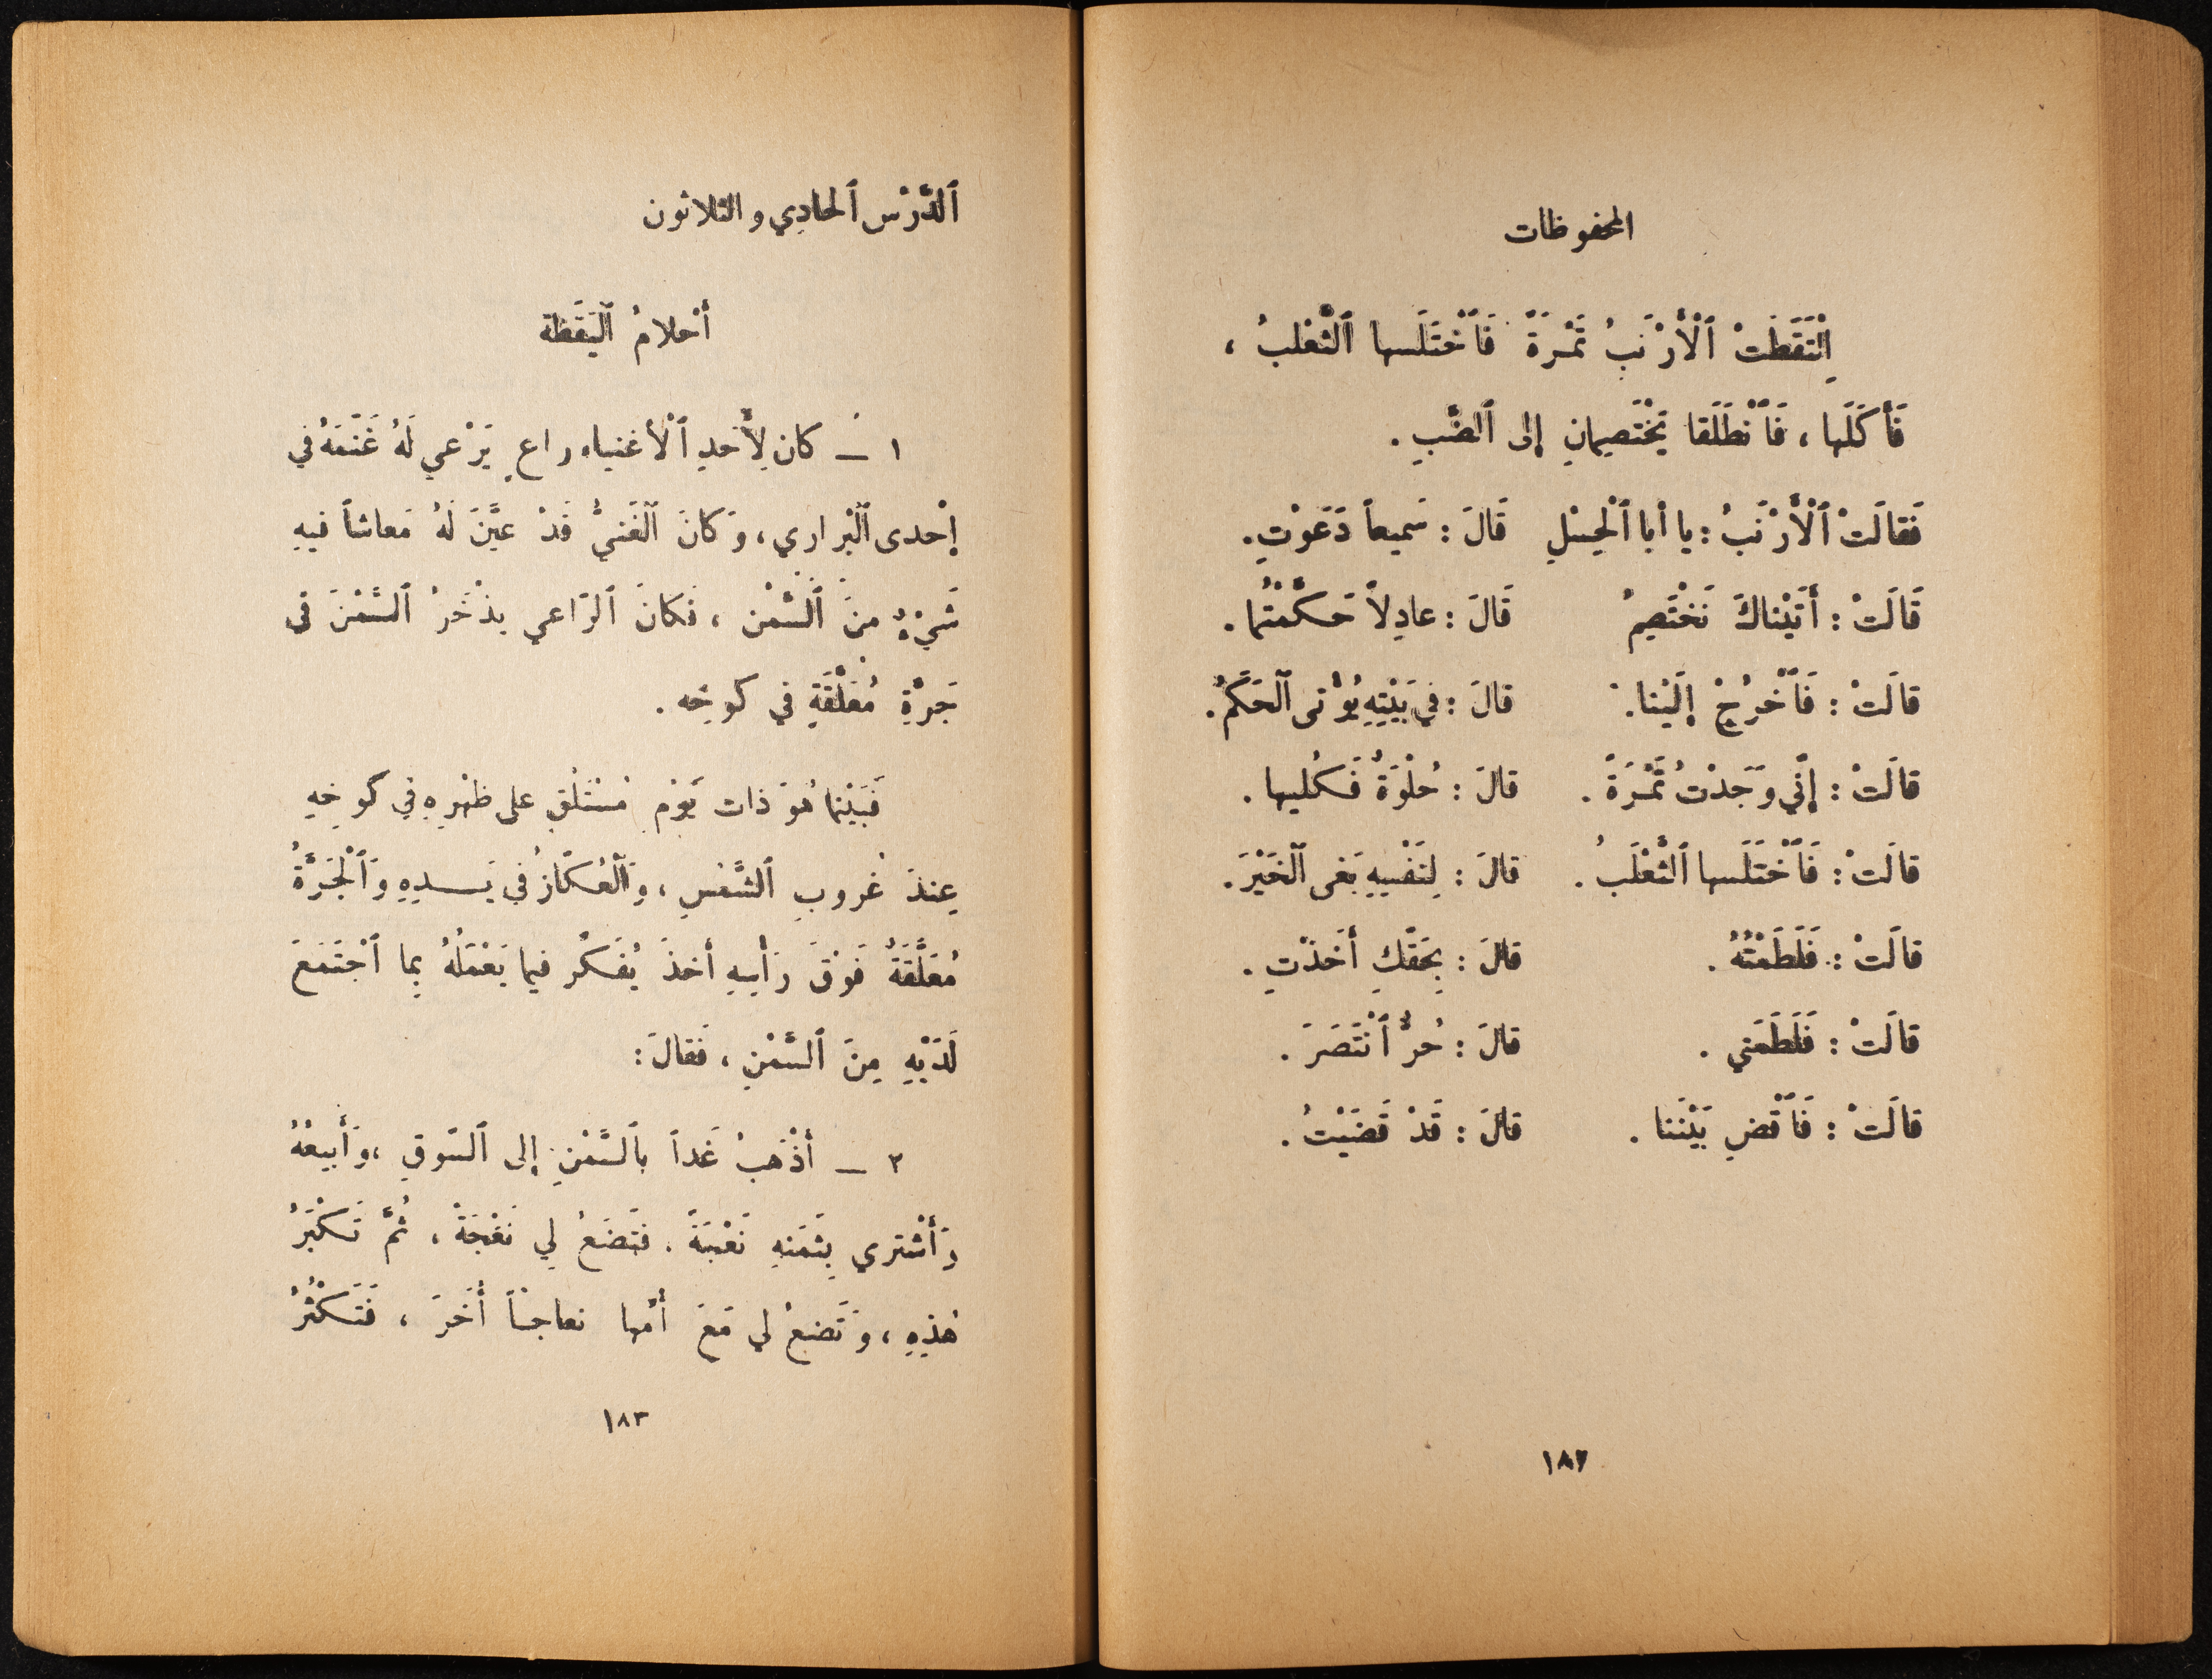 المحفوظات
اِلْتَقَطَتْ ٱلْأَرْنَبُ تَمْرَةً فَٱخْتَلَسها ٱلثَّعْلبُ ،
فَأَكَلَها ، فَٱنْطَلَقا يَخْتَصِمانِ إلى ٱلضَّبِ .
فَقالَتْ ٱلْأَرْنَبُ : يا أبا ٱلْحِسْلِ قَالَ : سَميعاً دَعَوْتِ .
قَالَتْ : أَتَيْناكَ نَخْتَصِمُ قَالَ : عادِلاً حَكَّمْتُما .
قالَتْ : فَٱخْرُجْ إلَيْنا . قالَ : في بَيْتِهِ يُؤْتى ٱلحَكَمُ .
قالَتْ : إنّي وَجَدْتُ تَمْرَةً . قالَ : حُلْوَةٌ فَكُليها .
قالَتْ : فَٱخْتَلَسها ٱلثَّعْلَبُ . قالَ : لِنَفْسِهِ بَغى ٱلخَيْرَ .
قالَتْ : فَلَطَمْتُهُ . قالَ : بِحَقّكِ أَخَذْتِ .
قالَتْ : فَلَطَمَني . قالَ : حُرٌّ ٱنْتَصَرَ .
قالَتْ : فَٱقْضِ بَيْنَنا . قالَ : قَدْ قَضَيْتُ .
١٨٢
ٱلدَّرْس ٱلحادِي و الثلاثون
أحْلامُ ٱليَقَظة
١ — كان لِأَحَدِ ٱلْأغنياء راعٍ يَرْعي لَهُ غَنَمَهُ في
إحْدى ٱلْبراري ، وَكانَ ٱلغَنيُّ قَدْ عَيَّنَ لَهُ مَعاشاً فيهِ
شَيْءٌ مِنَ ٱلسَّمْن ، فَكانَ ٱلرّاعي يذْخَرُ ٱلسَّمْنَ في
جَرَّةِ مُعَلَّقَةٍ في كوخِه .
فَبَيْنما هُوَ ذات يَوْم مُسْتَلْقٍ على ظهْرِهِ في كوخِهِ
عِندَ غُروبِ ٱلشَّمْسِ ، وَٱلْعُكّازُ في يَدِهِ وَٱلْجَرَّةُ
مُعَلَّقَةٌ فَوْقَ رَأسِهِ أخذَ يُفَكّر فيما يَعْمَلُهُ بِما ٱجْتَمَعَ
لَدَيْهِ مِنَ ٱلسَّمْنِ ، فَقالَ :
٢ — أذْهَبُ غَداً بٱلسَّمْنِ إلى ٱلسّوقِ ، وَأَبيعُهُ
وَأشْتري بِثَمَنهِ نَعْجَةً . فَتَضَعُ لي نَعْجَةً ، ثُمَّ تَكْبَرُ
هٰذِهِ ، وَتَضعُ لي مَعَ أمّها نعاجاً أُخَرَ ، فَتَكْثُرُ
١٨٣